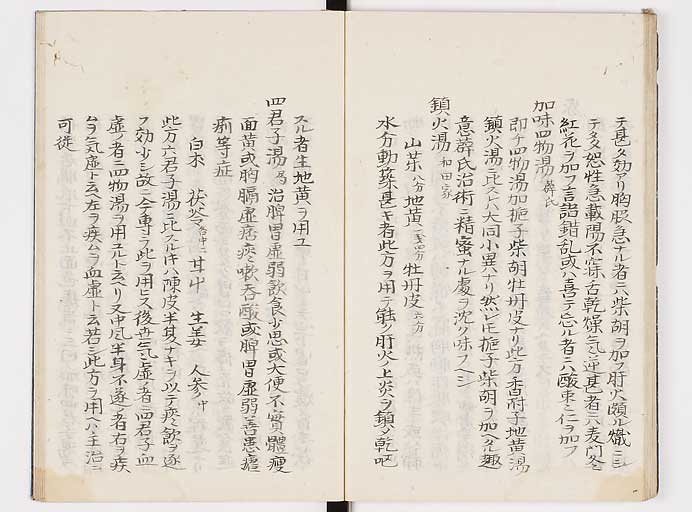 テ甚タ効アリ胸腹急ナル者ニハ柴胡ヲ加フ肝火頗ル熾ニシ
テタタ怒性急戴陽不寐舌乾燥シ気逆甚者ニハ麦門冬
紅花ヲ加フ言語錯乱或ハ喜テ忘ル者ニハ酸棗仁ヲ加フ
加味四物湯 薜氏
即チ四物湯加梔子柴胡牡丹皮ナリ此方香附子地黄湯
鎮火湯ニ比スルハ大同小異ナリ然レ𪜈梔子柴胡ヲ加ヘル趣
意薜氏治術ニ稍蜜ナル處ヲ沈ク味フヘシ
鎮火湯 和田家
山茱 八分 地黄 一戔四分 牡丹皮 六分
水分動築甚キ者此方ヲ用テ能ク肝火ノ上炎ヲ鎮メ乾咳
スル者生地黄ヲ用ユ
四君子湯 局 治脾胃虚弱飲食少思或大便不實體瘦
面黄或胸膈虚痞痰嗽吞酸或脾胃虚弱善患瘧
痢等症
白朮 茯苓 各中二 甘中 生姜 人参 中
此方六君子湯ニ比スル𪜈ハ陳皮半夏ナキヲ以テ痰飲ヲ逐
フ効少シ故ニ今専ラ此ヲ用ヒス後世気虚ノ者ニ四君子血
虚ノ者ニ四物湯ヲ用ユルト云ヘリ又中風半身不遂ノ者右ヲ疾
ムヲ気虚ト云ヘ左ヲ疾ムヲ血虚ト云若シ此方ヲ用ヘハ王治ニ
可従